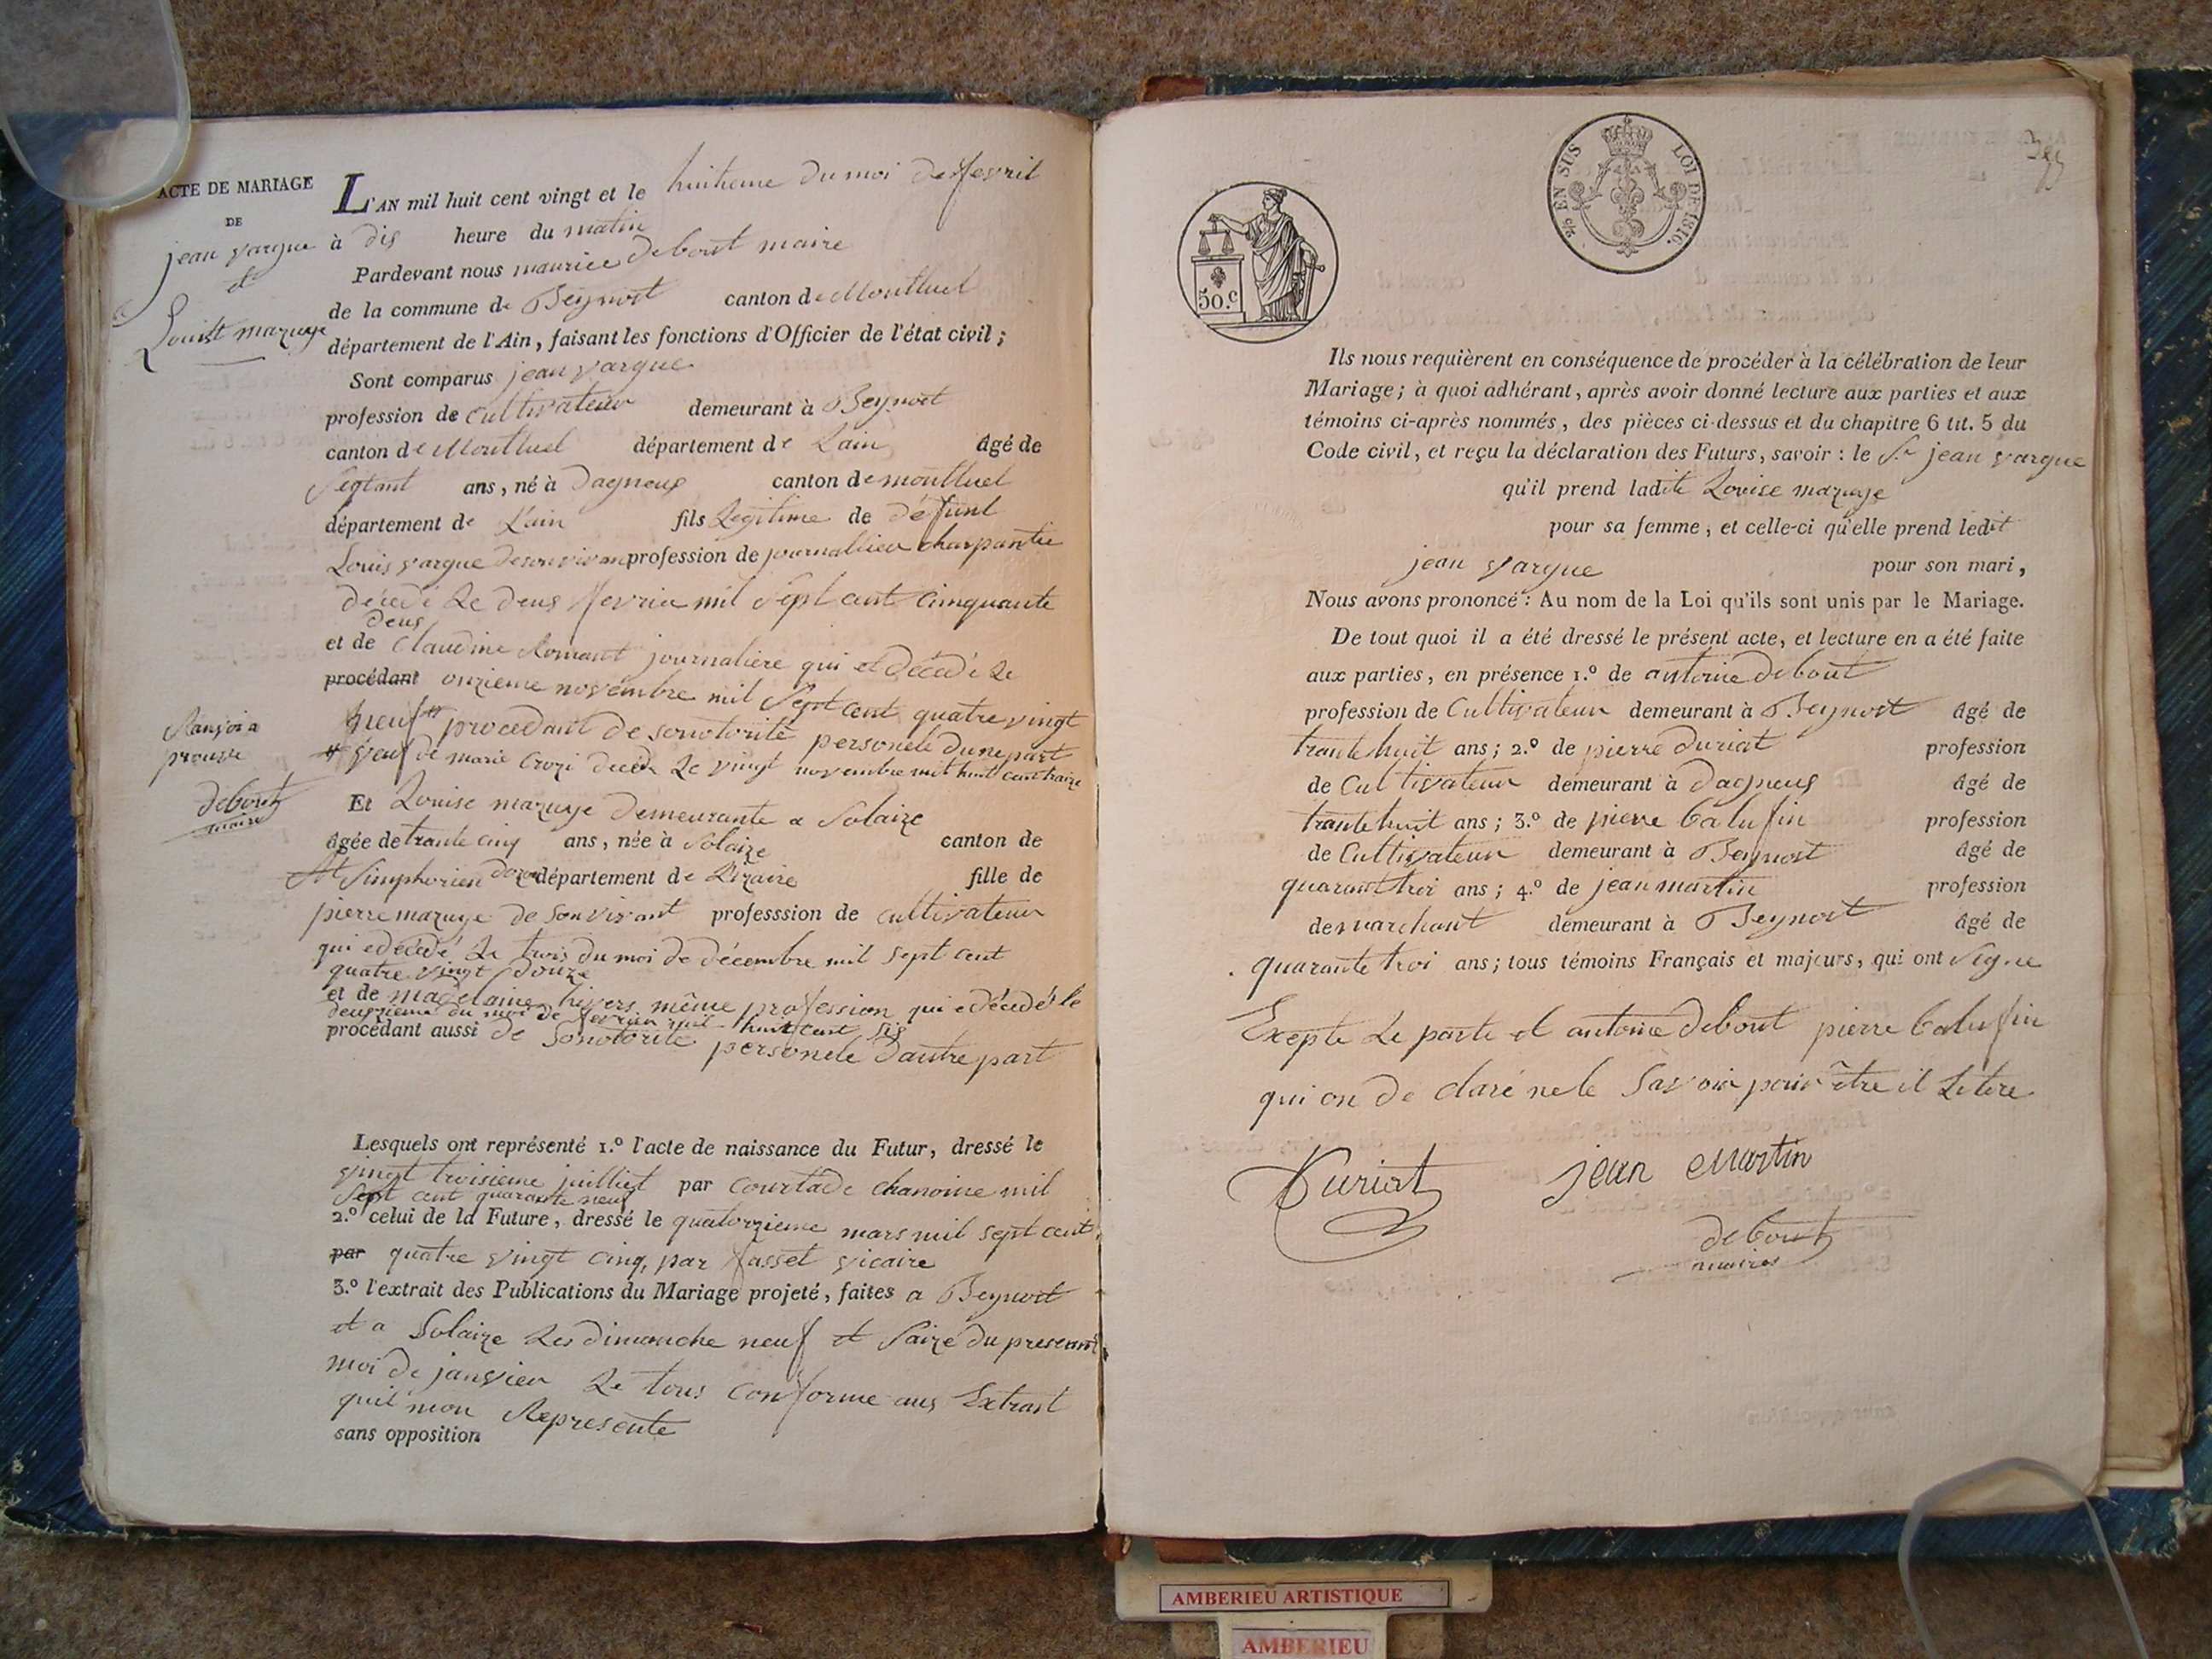 ACTE DE MARIAGE
DE
jean vargue
et
Louist mazuye
L'AN mil huit cent vingt et le huitieme du moi de fevril
à dis heure du matin
Pardevant nous maurice debout maire
de la commune de Beynost canton de Montluel
département de l'Ain, faisant les fonctions d'Officier de l'état civil;
Sont comparus jean vargue
profession de cultivateur demeurant à Beynost
canton de Montluel département de Lain âgé de
Septant ans, né à Dagneux canton de montluel
département de L'ain fils Legitime de défunt
Louis vargue profession de journallier charpantie
décedé Le deus fevrier mil Sept cent cinquante
deus
et de Claudine Romant journaliere qui et décédé Le
procédant onzieme novembre mil Sept cent quatre vingt
neuf # procedant de sonotorité personele dune part
# veuf de marie Crozi décédé Le vingt novembre mil huit cent traize
prouve
debout
maire
Et Louise mazuye demeurante a Solaize
âgée de trante cinq ans, née à Solaize canton de
St Simphorien département de Lizaire fille de
pierre mazuye de Sonvivant professsion de cultivateur
qui e décédé Le trois du moi de décembre mil sept cent
quatre vingt douze
et de madelaine hivers même profession qui e décédé le
deuxieme du moi de fevrier mil huit cent sis
procédant aussi de Sonotorité personele dautre part
Lesquels ont représenté 1.º l'acte de naissance du Futur, dressé le
vingt troisieme juilliet par courtade chanoine mil
Sept cent quarante neuf
2.º celui de la Future, dressé le quatorzieme mars mil sept cent
par quatre vingt cinq, par fasset vicaire
3.º l'extrait des Publications du Mariage projeté, faites a Beynost
et a Solaize Les dimanche neuf et Saize du present
moi de janvier Le tous conforme aus Extrast
quil mon Represente
sans opposition
2/10 EN SUS LOI DE 1816.
50.c
Ils nous requièrent en conséquence de procéder à la célébration de leur
Mariage; à quoi adhérant, après avoir donné lecture aux parties et aux
témoins ci-après nommés, des pièces ci-dessus et du chapitre 6 tit. 5 du
Code civil, et reçu la déclaration des Futurs, savoir: le Sr jean vargue
qu'il prend ladite Louise mazuye
pour sa femme, et celle-ci qu'elle prend ledit
jean vargue pour son mari,
Nous avons prononcé: Au nom de la Loi qu'ils sont unis par le Mariage.
De tout quoi il a été dressé le présent acte, et lecture en a été faite
aux parties, en présence 1.º de antoine debout
profession de Cultivateur demeurant à Beynost âgé de
trante huit ans; 2.º de pierre duriat profession
de Cultivateur demeurant à dagneus âgé de
trante huit ans; 3.º de pierre balufin profession
de Cultivateur demeurant à Beynost âgé de
quarant troi ans; 4.º de jean martin profession
de marchant demeurant à Beynost âgé de
quarante troi ans; tous témoins Français et majeurs, qui ont Signe
Exepte Le parte et antoine debout pierre balufin
qui on de claré nele Savoir pour être il Letere
Duriat
jean Martin
debout
maire
AMBERIEU ARTISTIQUE
AMBERIEU